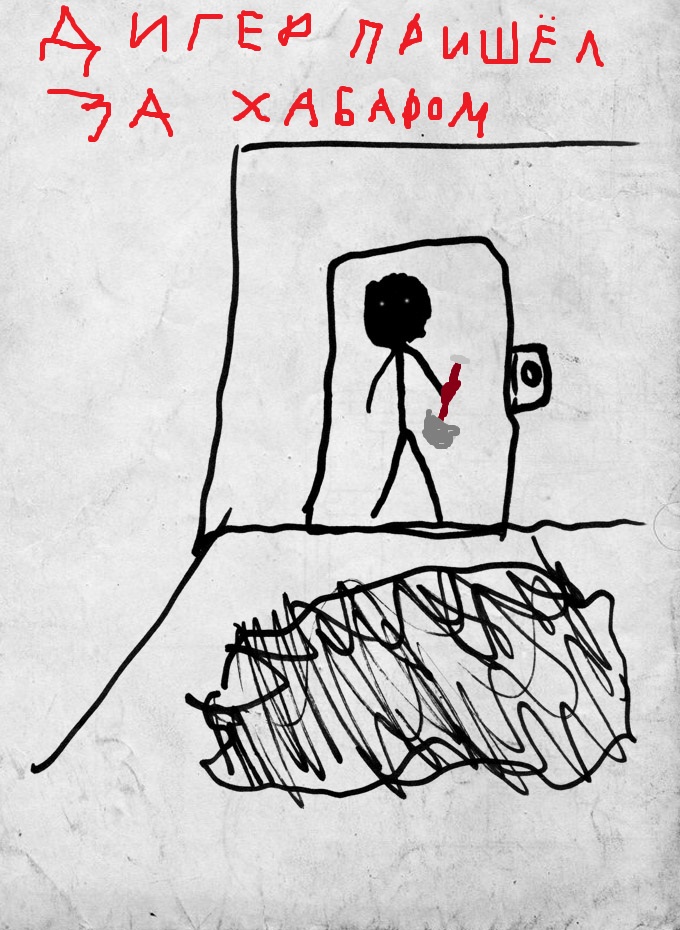 ДИГЕР ПРИШЁЛ
ЗА ХАБАРОМ